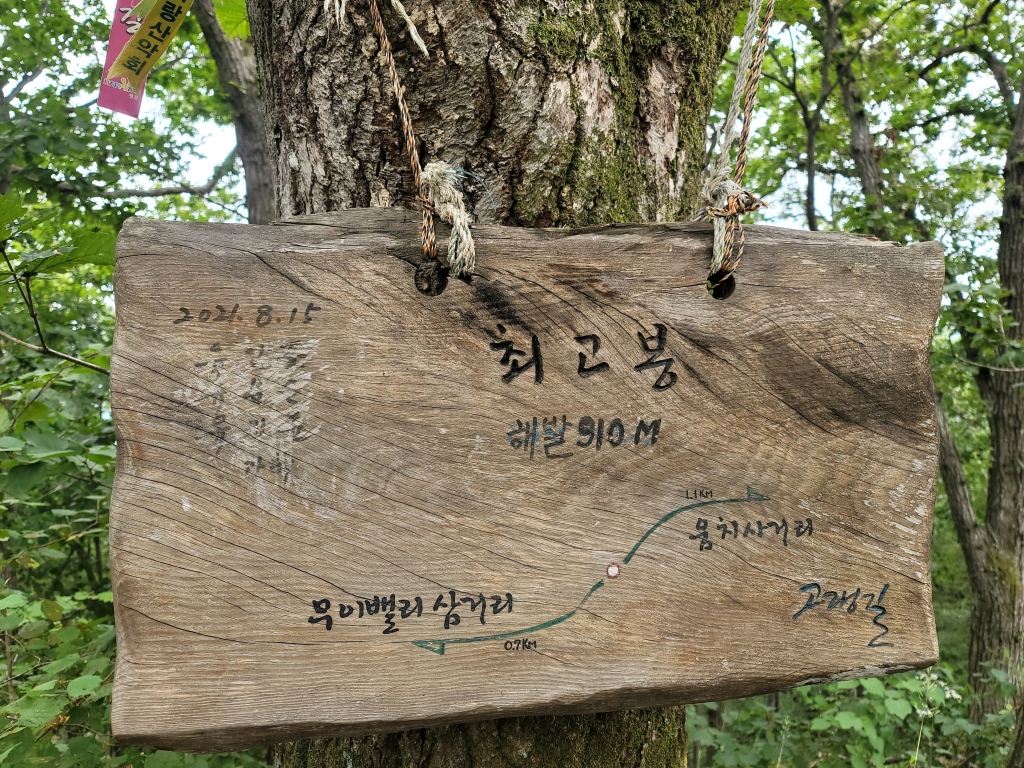 산악회
2021. 8. 15
최고봉
해발 910M
1.1KM
웅치사거리
무이밸리 삼거리
0.7KM
고갱길